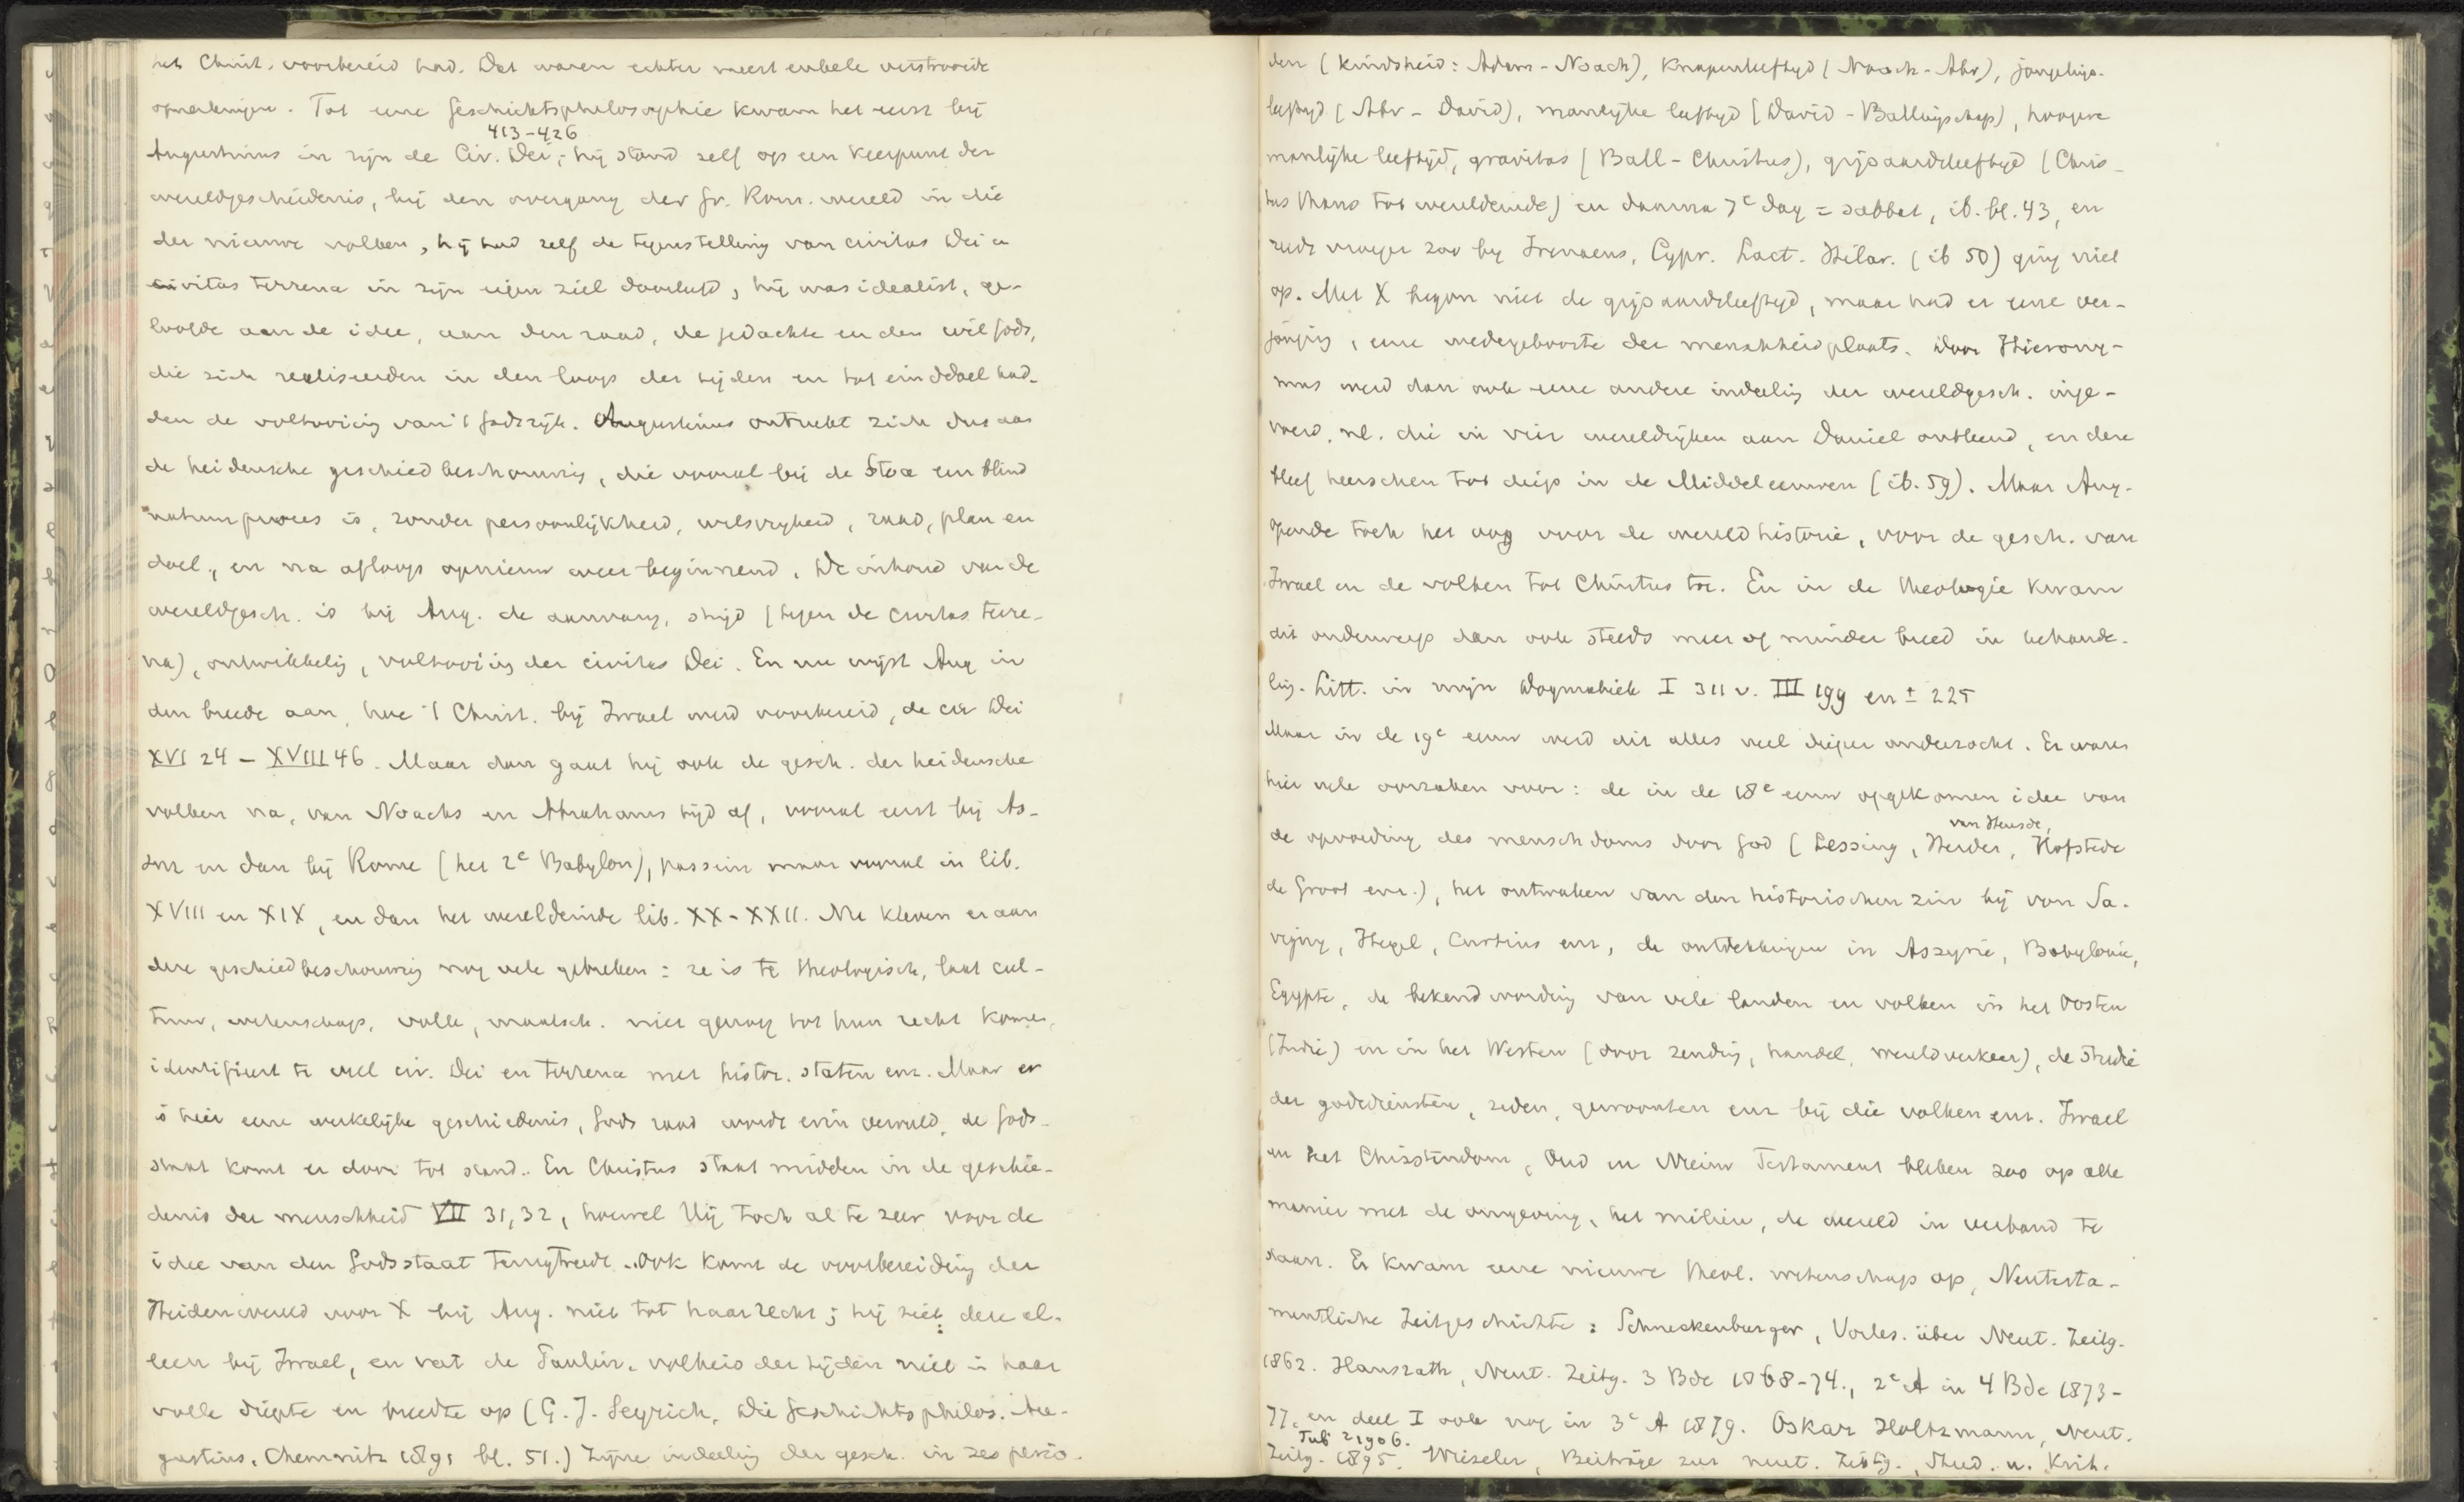 het Christ. voorbereid had. Dat waren echter meest enkele verstrooide
opmerkingen. Tot eene Geschichtsphilosophie kwam het eerst bij
413-426
Augustinus in zijn de Civ. Dei; hij stond zelf op een keerpunt der
wereldgeschiedenis, bij den overgang der Gr. Rom. wereld in die
der nieuwe volken, hij had zelf de tegenstelling van civitas Dei en
civitas terrena in zijn eigen ziel doorleefd, hij was idealist, ge-
loofde aan de idee, aan den raad, de gedachte en den wil Gods,
die zich realiseerden in den loop der tijden en tot einddoel had-
den de voltooiing van 't Godsrijk. Augustinus ontrukt zich dus aan
de heidensche geschiedbeschouwing, die vooral bij de Stoa een blind
natuurproces is, zonder persoonlijkheid, wilsvrijheid, raad, plan en
doel, en na afloop opnieuw weer beginnend. De inhoud van de
wereldgesch. is bij Aug. de aanvang, strijd (tegen de civitas terre-
na), ontwikkeling, voltooiing der civitas Dei. En nu wijst Aug in
den breede aan, hoe 't Christ. bij Israel werd voorbereid, de civ Dei
XVI 24 - XVIII 46. Maar dan gaat hij ook de gesch. der heidensche
volken na, van Noachs en Abrahams tijd af, vooral eerst bij As-
sur en dan bij Rome (het 2e Babylon), passim maar vooral in lib.
XVIII en XIX, en dan het wereldeinde lib. XX-XXII. Nu kleven er aan
deze geschiedbeschouwing nog vele gebreken: ze is te theologisch, laat cul-
tuur, wetenschap, volk, maatsch. niet genoeg tot hun recht komen,
identifieert te veel civ. Dei en terrena met histor. staten enz. Maar er
is hier eene werkelijke geschiedenis, Gods raad wordt erin vervuld, de Gods-
staat komt er door tot stand. En Christus staat midden in de geschie-
denis der menschheid VII 31,32, hoewel Hij toch al te zeer voor de
idee van den Godsstaat terugtreedt. Ook komt de voorbereiding der
Heidenwereld voor X bij Aug. niet tot haar recht; hij ziet deze al-
leen bij Israel, en vat de Paulin. volheid der tijden niet in haar
volle diepte en breedte op (G. J. Seyrich, Die Geschichtsphilos. Au-
gustins, Chemnitz 1891 bl. 51.) Zijne indeeling der gesch. in zes perio-
den (kindsheid: Adam-Noach), knapenleeftyd (Noach-Abr), jongelings-
leeftyd (Abr - David), manlijke leeftyd (David - Ballingschap), hoogere
manlijke leeftijd, gravitas (Ball - Christus), grijsaardsleeftyd (Chris-
tus thans tot wereldeinde) en daarna 7e dag = sabbat, ib. bl. 43, en
reeds vroeger zoo by Irenaeus, Cypr. Lact. Hilar. (ib 50) ging niet
op. Met X begon niet de grijsaardsleeftyd, maar had er eene ver-
jonging, eene wedergeboorte der menschheid plaats. Door Hierony-
mus werd dan ook eene andere indeeling der wereldgesch. inge-
voerd, nl. die in vier wereldrijken aan Daniel ontleend, en deze
bleef heerschen tot diep in de Middeleeuwen (ib. 59). Maar Aug.
opende toch het oog voor de wereldhistorie, voor de gesch. van
Israel en de volken tot Christus toe. En in de theologie kwam
dit onderwerp dan ook steeds meer of minder breed in behande-
ling. Litt. in mijn Dogmatiek I 311 v. III 199 en ± 225
Maar in de 19e eeuw werd dit alles veel dieper onderzocht. Er waren
hier vele oorzaken voor: de in de 18e eeuw opgekomen idee van
van Heusde,
de opvoeding des menschdoms door God (Lessing, Herder, Hofstede
de Groot enz.), het ontwaken van den historischen zin bij von Sa-
vigny, Hegel, Curtius enz, de ontdekkingen in Assyrie, Babylonie,
Egypte, de bekendwording van vele landen en volken in het Oosten
(Indie) en in het Westen (door zending, handel, wereldverkeer), de studie
der godsdiensten, zeden, gewoonten enz bij die volken enz. Israel
en het Christendom, Oud en Nieuw Testament bleken zoo op alle
manier met de omgeving, het milieu, de wereld in verband te
staan. Er kwam eene nieuwe theol. wetenschap op, Neutesta-
mentliche Zeitgeschichte: Schneckenburger, Vorles. über Neut. Zeitg.
1862. Hausrath, Neut. Zeitg. 3 Bde 1868-74., 2e A in 4 Bde 1873-
77. en deel I ook nog in 3e A 1879. Oskar Holtzmann, Neut.
Tub 21906.
Zeitg. 1895. Wieseler, Beiträge zur neut. Zeitg., Stud. u. Krit.